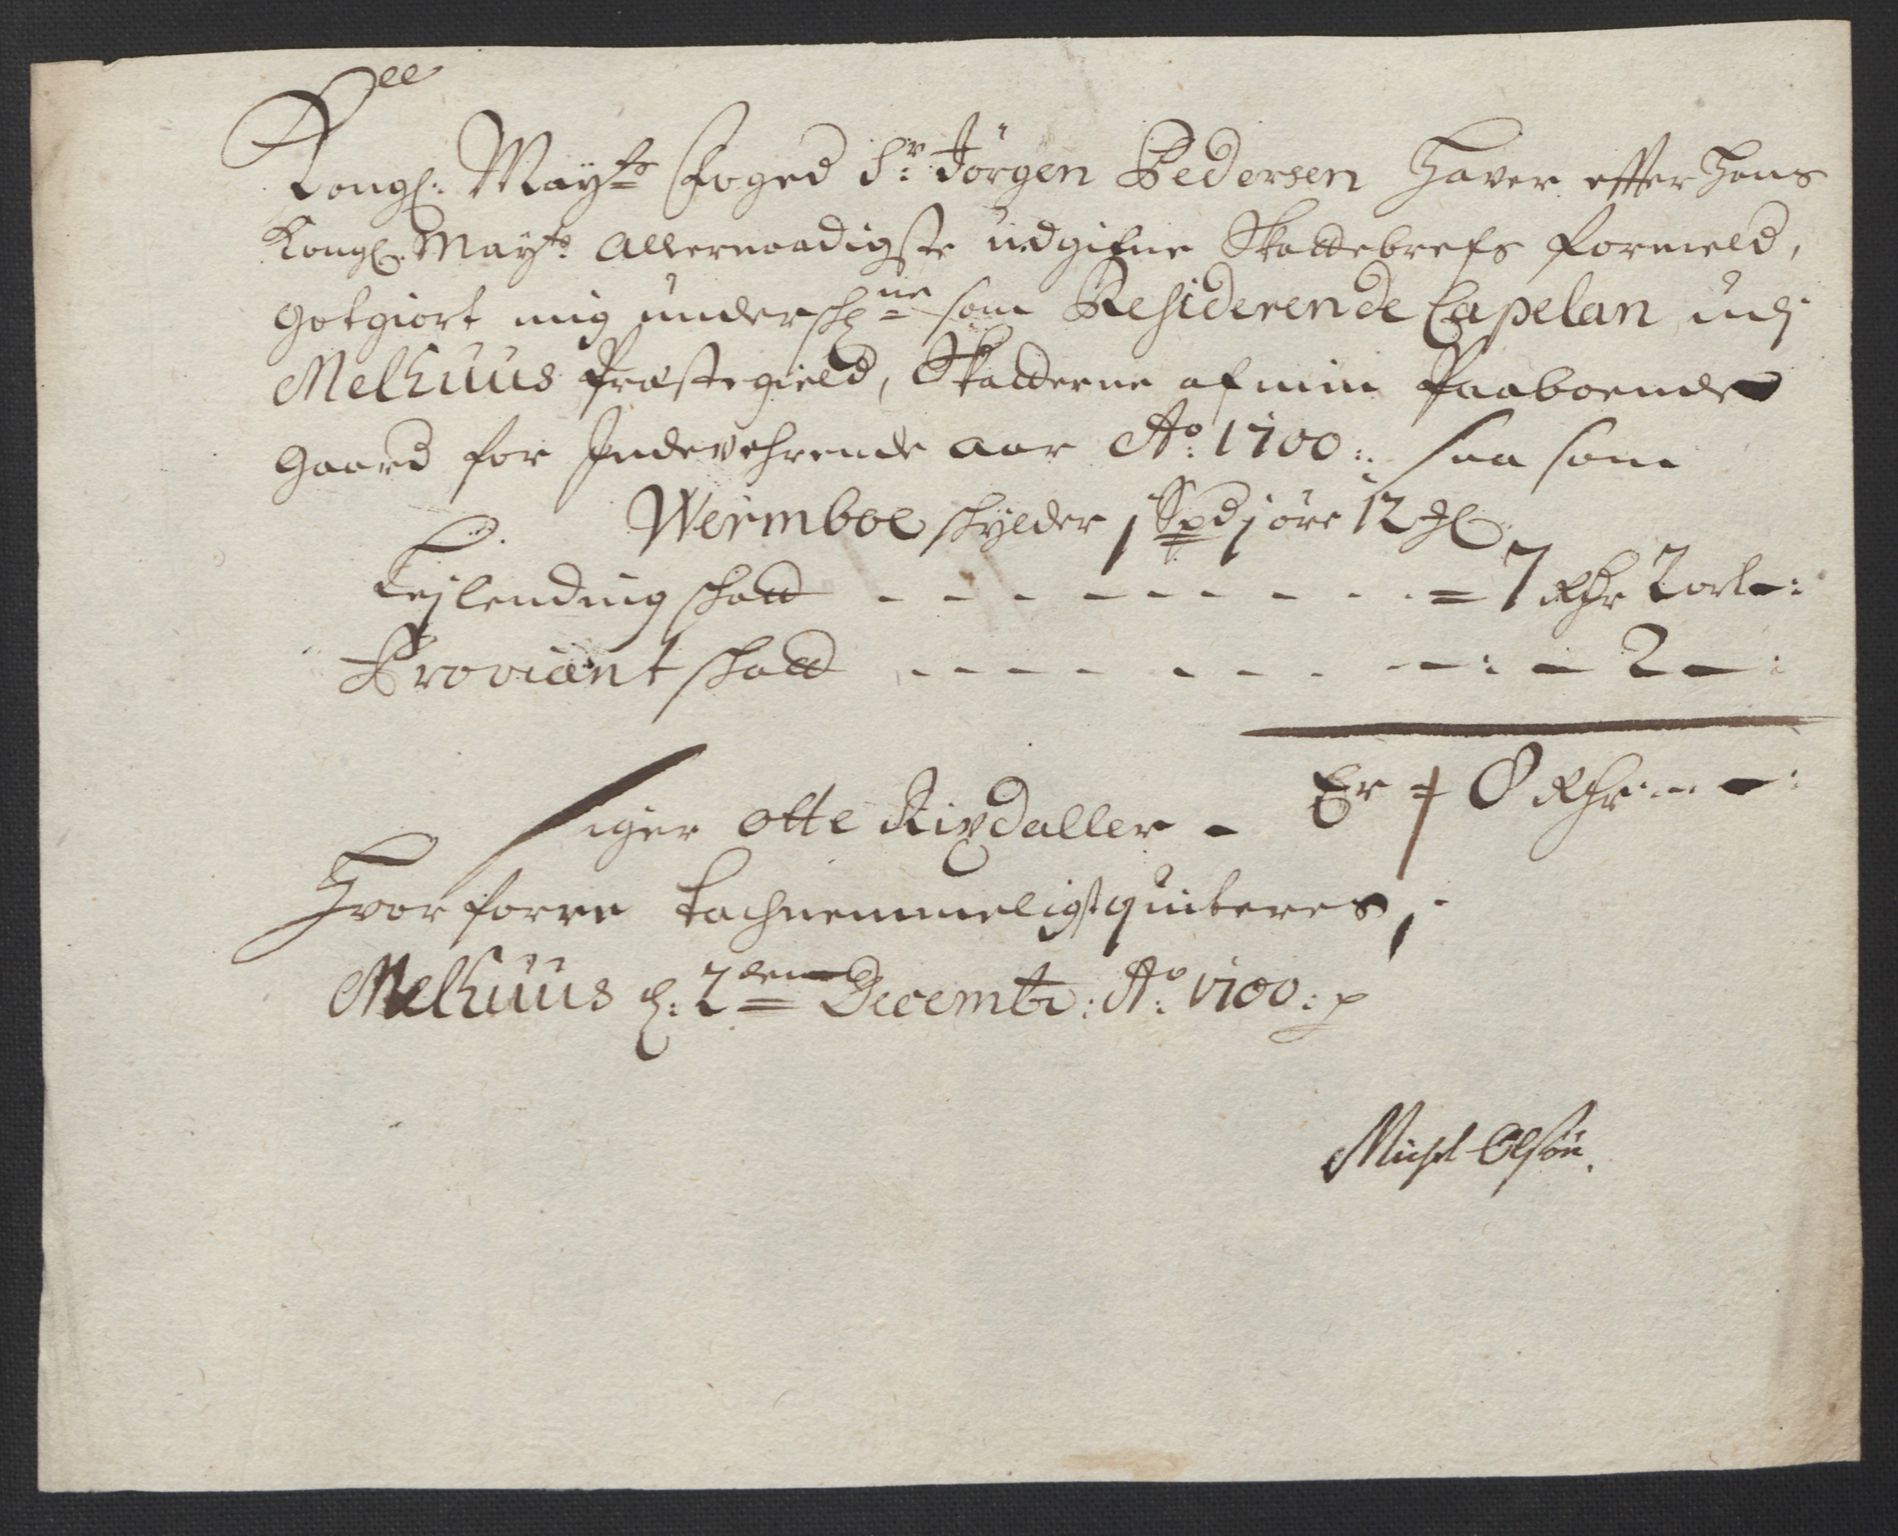 Kongl: May:ts Foged Sr: Jörgen Pedersen Hafver effter Hans
Kongl: May:ts Allernaadigste udgifne Skattebrefs formeld,
gotgiort mig undersch:ne som Residerende Capelan udj
Melhuus Præstegield, Skatterne af min Paaboende
gaard for Indeverhrende aar Ao: 1700: saa som
Wermboe schylder j Spd j öre 12 
Lejlending schatt - - - - - - - - - = 7 Rdr 2 ort -:
Proviant schatt - - - - - - - - - -: - 2 - :
Er 8 Rdr - - :
siger otte Rixdaller -
Hvorforre tachnemmeligst quiteres,
Melhuus d: 2den Decembr: Ao: 1700:
Michel Olsön.